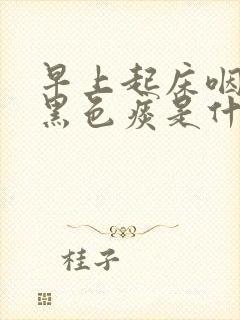 早上起床咽
黑色痰是什
桂子